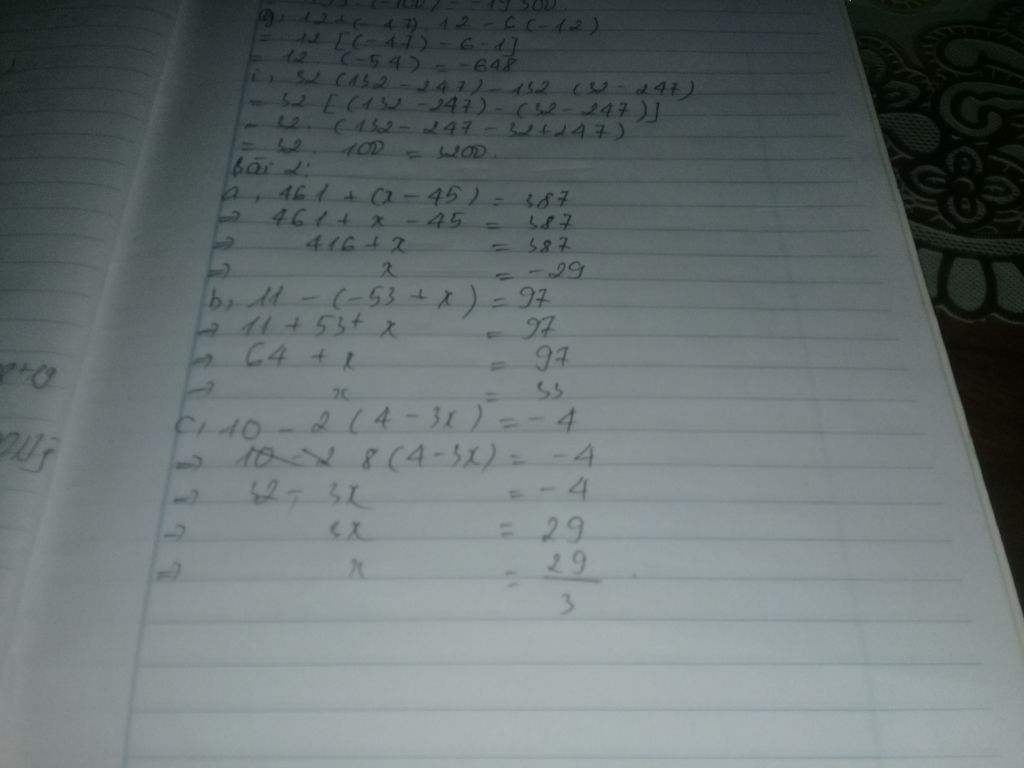 (-100) = -19300
g, 12 + (-17) 12 - 6 (-12)
= 12 [(-17) - 6 - 1]
= 12. (-54) = -648
i, 32 (132 - 247) - 132 (32 - 247)
= 32 [(132 - 247) - (32 - 247)]
= 32. (132 - 247 - 32 + 247)
= 32. 100 = 3200.
Bài 2:
a, 461 + (x - 45) = 387
=> 461 + x - 45 = 387
=> 416 + x = 387
=> x = -29
b, 11 - (-53 + x) = 97
=> 11 + 53 + x = 97
=> 64 + x = 97
=> x = 33
c, 10 - 2 (4 - 3x) = -4
=> 10 - 2 8 (4 - 3x) = -4
=> 32 - 3x = -4
=> 3x = 29
=> x = 29
3